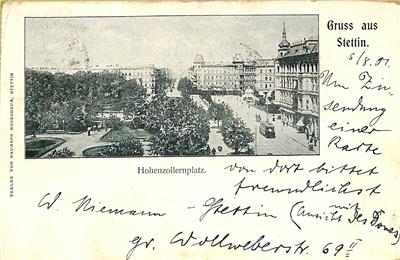 Gruss aus
Stettin.
5/8.01.
Um Zu-
sendung
einer
Karte
von dort bittet
freundlichst
W. Niemann - Stettin (Ansicht des
mit
gr. Wollweberstr. 69 II
Hohenzollernplatz.
VERLAG VON NAUMANN ROSENBAUM, STETTIN